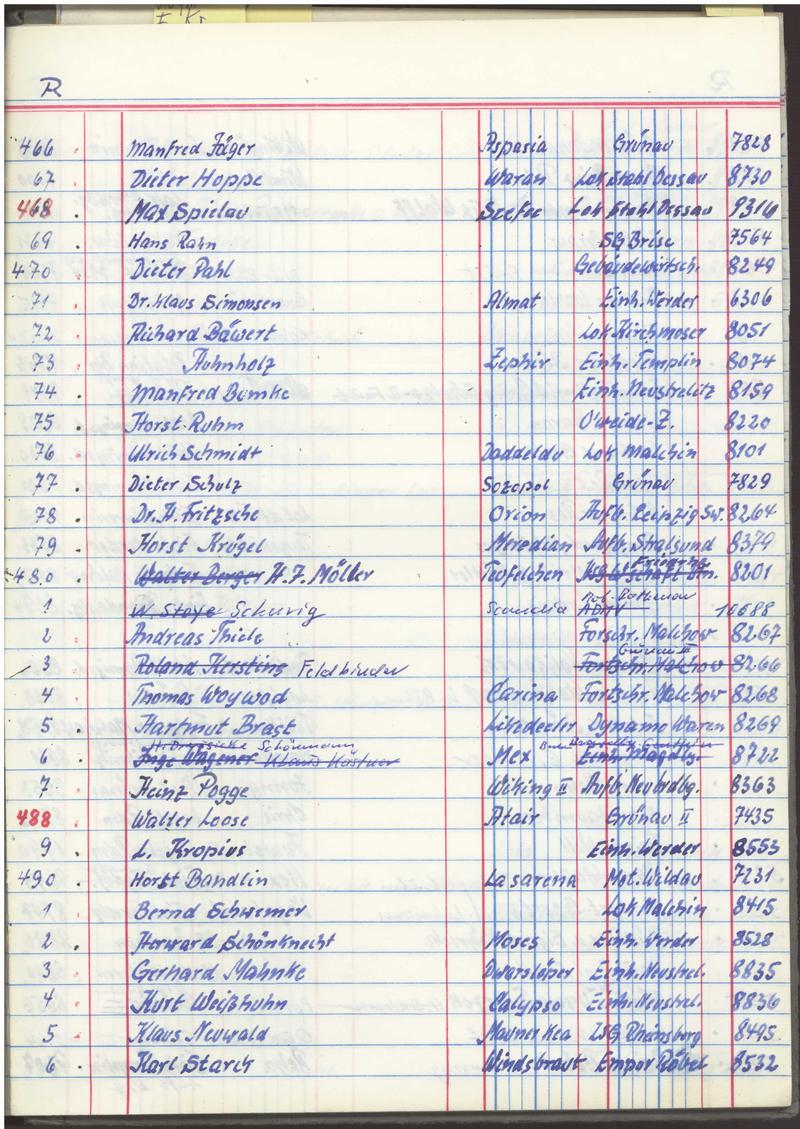 R
466 . Manfred Jäger Aspasia Grünau 7828
67 . Dieter Hoppe Waran Lok Stahl Dessau 8730
468 . Max Spielau Seefee Lok Stahl Dessau 9316
69 . Hans Rahn SG Brise 7564
470 . Dieter Pahl Gebäudewirtsch. 8249
71 . Dr. Klaus Simonsen Almat Einh. Werder 6306
72 . Richard Bäwert Lok Kirchmoser 8051
73 Hohnholz Zephir Einh. Templin 8074
74 . Manfred Bemke Einh. Neustrelitz 8159
75 . Horst Ruhm O'weide-Z. 8220
76 . Ulrich Schmidt Daddeldu Lok Malchin 8101
77 . Dieter Schulz Sozopol Grünau 7829
78 . Dr. H. Fritzsche Orion Aufb. Leipzig Sw. 8264
79 . Horst Krügel Meredian Aufb. Stralsund 8379
480 . Walter Berger H. J. Möller Teufelchen 8201
1 . W. Steye Schurig 10688
2 . Andreas Thiele Forschr. Malchow 8267
3 . Roland Kersting Feldbinder Fortschr. Malchow 8266
4 . Thomas Woywod Carina Fortschr. Malchow 8268
5 . Hartmut Brast Likedeeler Dynamo Waren 8269
6 . Inge Wagener Klaus Köstner Schönemann Mex Einh. Magdbg. 8722
7 . Heinz Pogge Wiking II Aufb. Neubrdbg. 8363
488 . Walter Loose Atair Grünau II 7435
9 . L. Kropius Einh. Werder 8553
490 . Horst Bandlin La sarena Mot. Wildau 7231
1 . Bernd Schwemer Lok Malchin 8415
2 . Herward Schönknecht Moses Einh. Werder 8528
3 . Gerhard Mahnke Dwarslöper Einh. Neustrel. 8835
4 . Kurt Weißhuhn Calypso Einh. Neustrel. 8836
5 . Klaus Neuwald Mauner Kea ZSG Rheinsberg 8495
6 . Karl Starck Windsbraut Empor Röbel 8532